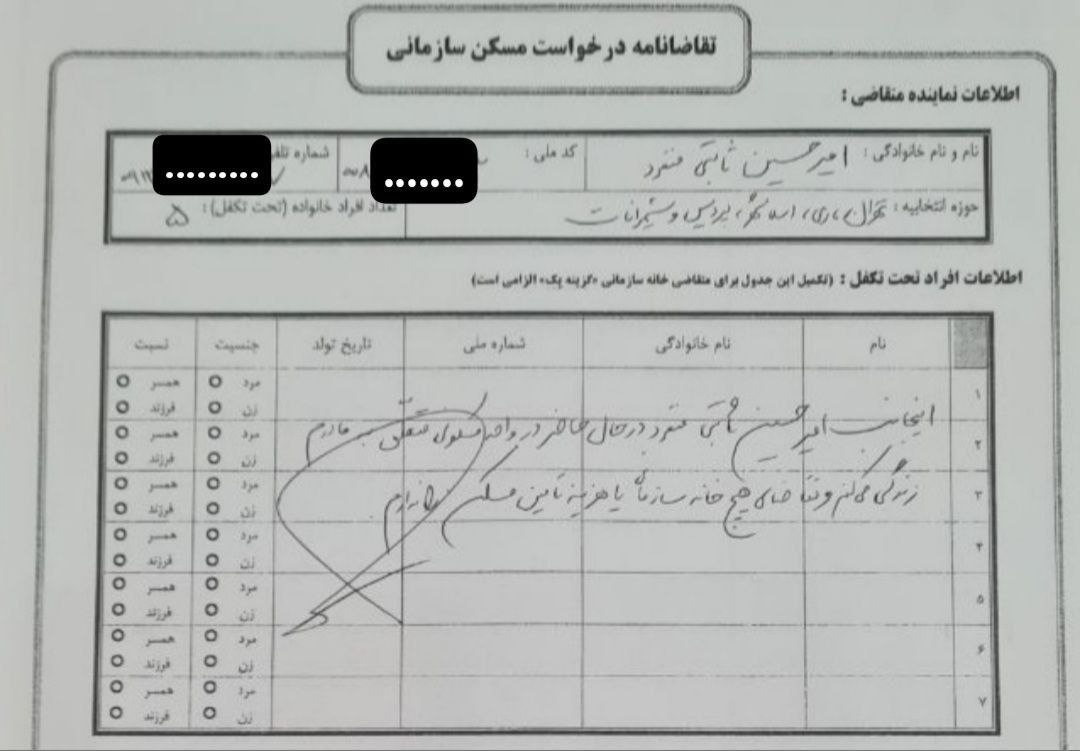 تقاضانامه درخواست مسکن سازمانی
اطلاعات نماینده متقاضی :
نام و نام خانوادگی : امیرحسین ثابتی منفرد کد ملی : ۰۰۸ شماره تلفن ۰۹۱۲
حوزه انتخابیه : تهران، ری، اسلامشهر، پردیس و شمیرانات تعداد افراد خانواده (تحت تکفل): ۵
اطلاعات افراد تحت تکفل : (تکمیل این جدول برای متقاضی خانه سازمانی «گزینه یک» الزامی است)
نام نام خانوادگی شماره ملی تاریخ تولد جنسیت نسبت
۱ مرد همسر
زن فرزند
اینجانب امیرحسین ثابتی منفرد در حال حاضر در واحد مسکونی متعلق به مادرم
۲ مرد همسر
زن فرزند
زندگی می‌کنم و تقاضای هیچ خانه سازمانی یا هزینه تامین مسکن را ندارم
۳ مرد همسر
زن فرزند
۴ مرد همسر
زن فرزند
۵ مرد همسر
زن فرزند
۶ مرد همسر
زن فرزند
۷ مرد همسر
زن فرزند